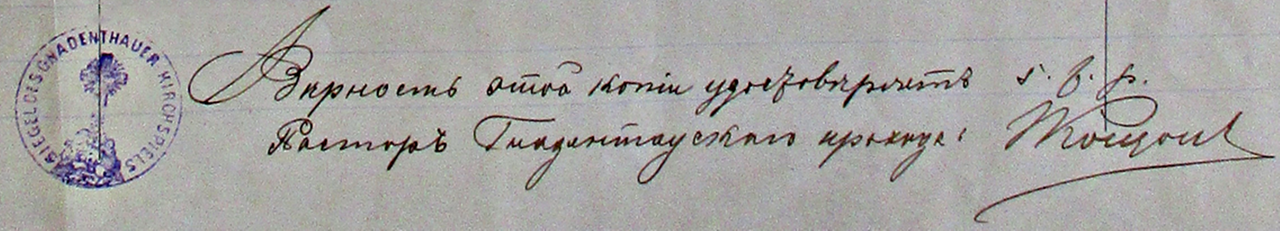 SIEGEL DES GNADENTHAUER KIRCHSPIELS
Вѣрность этой копіи удостовѣряетъ
Пасторъ Гнадентаускаго прихода: